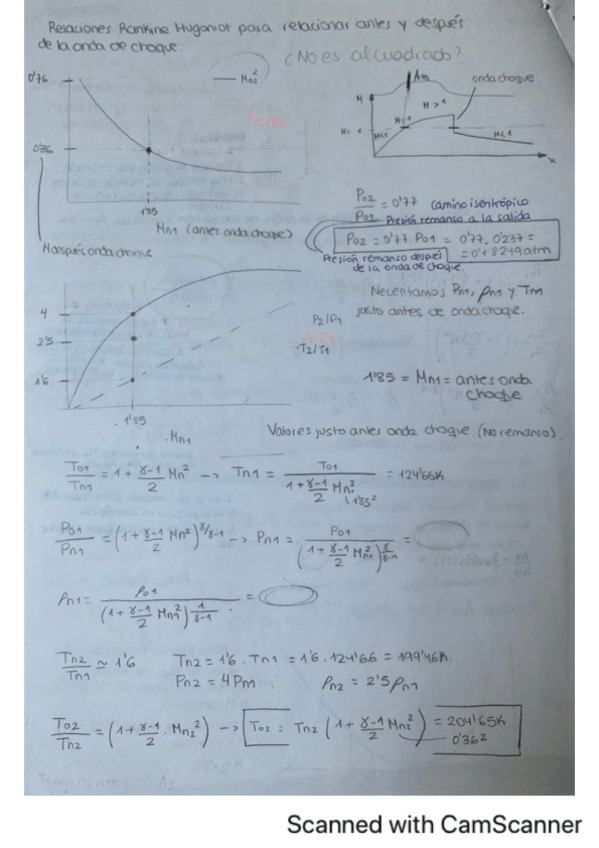 Relaciones Rankine Hugoniot para relacionar antes y después
de la onda de choque.
(No es al cuadrado)
Mn₂²
0'76
0'36
1'85
Mn1 (antes onda choque)
M después onda choque
Am
onda choque
M
M>1
M=1
M=1
M<1
M<1
x
Po2/Po1 = 0'77 camino isentrópico
Presión remanso a la salida
Po2 = 0'77 · Po1 = 0'77 · 0'237 =
= 0'18249 atm
Presión remanso después
de la onda de choque.
Necesitamos Pn1, ρn1 y Tn1
justo antes de onda choque.
4
2'5
1'6
P2/P1
T2/T1
1'85
Mn1
1'85 = Mn1 = antes onda
choque
Valores justo antes onda choque (No remanso).
To1/Tn1 = 1 + γ-1/2 Mn² -> Tn1 = To1/(1 + γ-1/2 Mn₁²) = 124'66K
(1'85²
Po1/Pn1 = (1 + γ-1/2 Mn²)^γ/γ-1 -> Pn1 = Po1/(1 + γ-1/2 Mn₁²)^γ/γ-1 =
ρn1 = ρo1/(1 + γ-1/2 Mn1²)^1/γ-1 =
Tn2/Tn1 ≃ 1'6 Tn2 = 1'6 · Tn1 = 1'6 · 124'66 = 199'46K
Pn2 = 4Pn1 ρn2 = 2'5ρn1
To2/Tn2 = (1 + γ-1/2 · Mn₂²) -> To2 = Tn2 (1 + γ-1/2 Mn₂²) = 204'65K
0'36²
Scanned with CamScanner